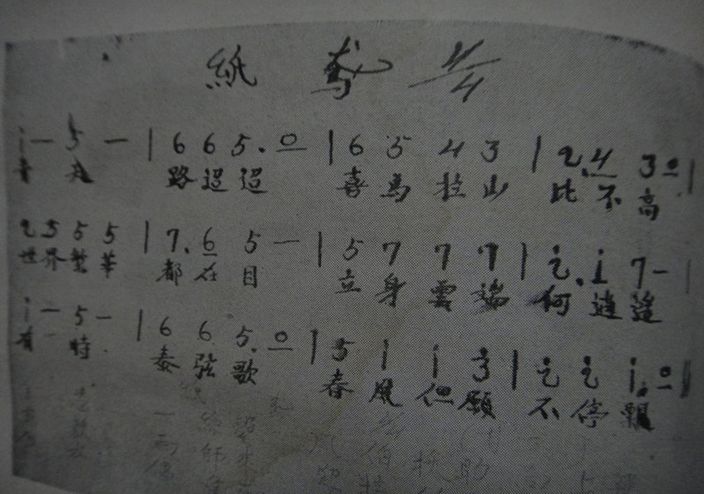 紙鳶 4/4
i — 5 — | 6 6 5. 0 | 6 5 4 3 | 2. 4 3 0 |
青 走 路迢迢 喜馬拉山 比不高
2 5 5 5 | 7. 6 5 — | 5 7 7 7 | i. i 7 — |
世界繁華 都在目 立身雲端 何逍遙
i — 5 — | 6 6 5. 0 | 5 i i 3 | 2 2 i. 0 ||
有時 泰弦歌 春風但願 不停飄